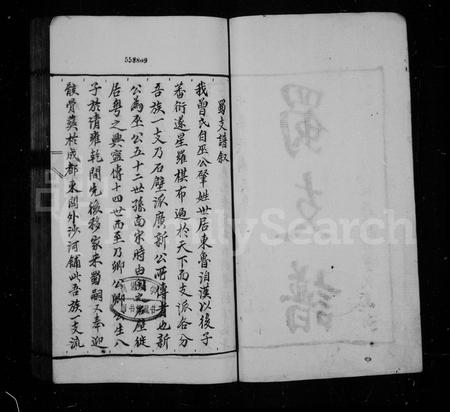 558809
蜀支譜叙
我曾氏自巫公肇姓世居東魯洎漢以後子
蕃衍遂星羅棋布遍於天下而支派各分
吾族一支乃石壁派廣新公所傳者也新
公為巫公五十二世孫南宋時由閩之石壁徙
居粵之興寧傳十四世而至乃卿公卿公生八
子於清雍乾間先後移家来蜀嗣又奉迎
骸骨葬於成都東門外沙河鋪此吾族一支流
蜀支譜
FamilySearch